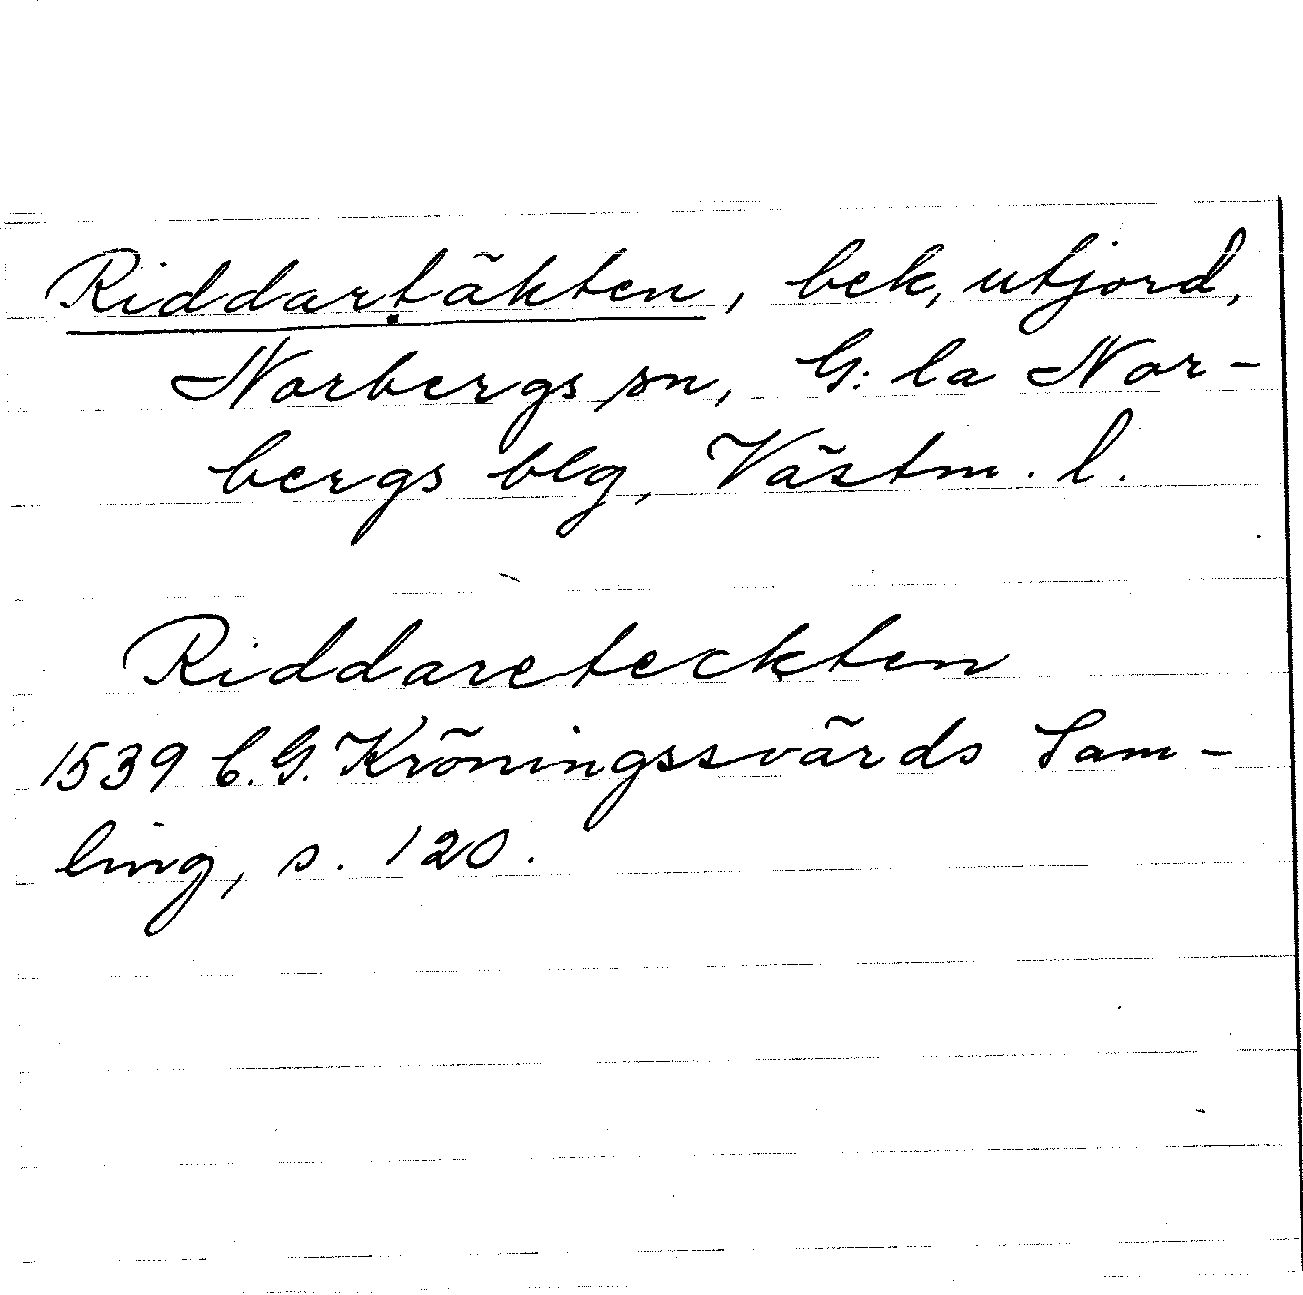 Riddartäkten, bek, utjord,
Norbergs sn, G:la Nor-
bergs blg, Västm. l.
Riddareteckten
1539 C.G. Kröningssvärds Sam-
ling, s. 120.